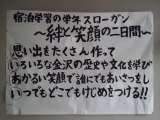 宿泊学習の学年スローガン
〜絆と笑顔の二日間〜
思い出をたくさん作って
いろいろな金沢の歴史や文化を学び
あかるい笑顔で誰にでもあいさつをし
いつでもどこでもけじめをつける!!